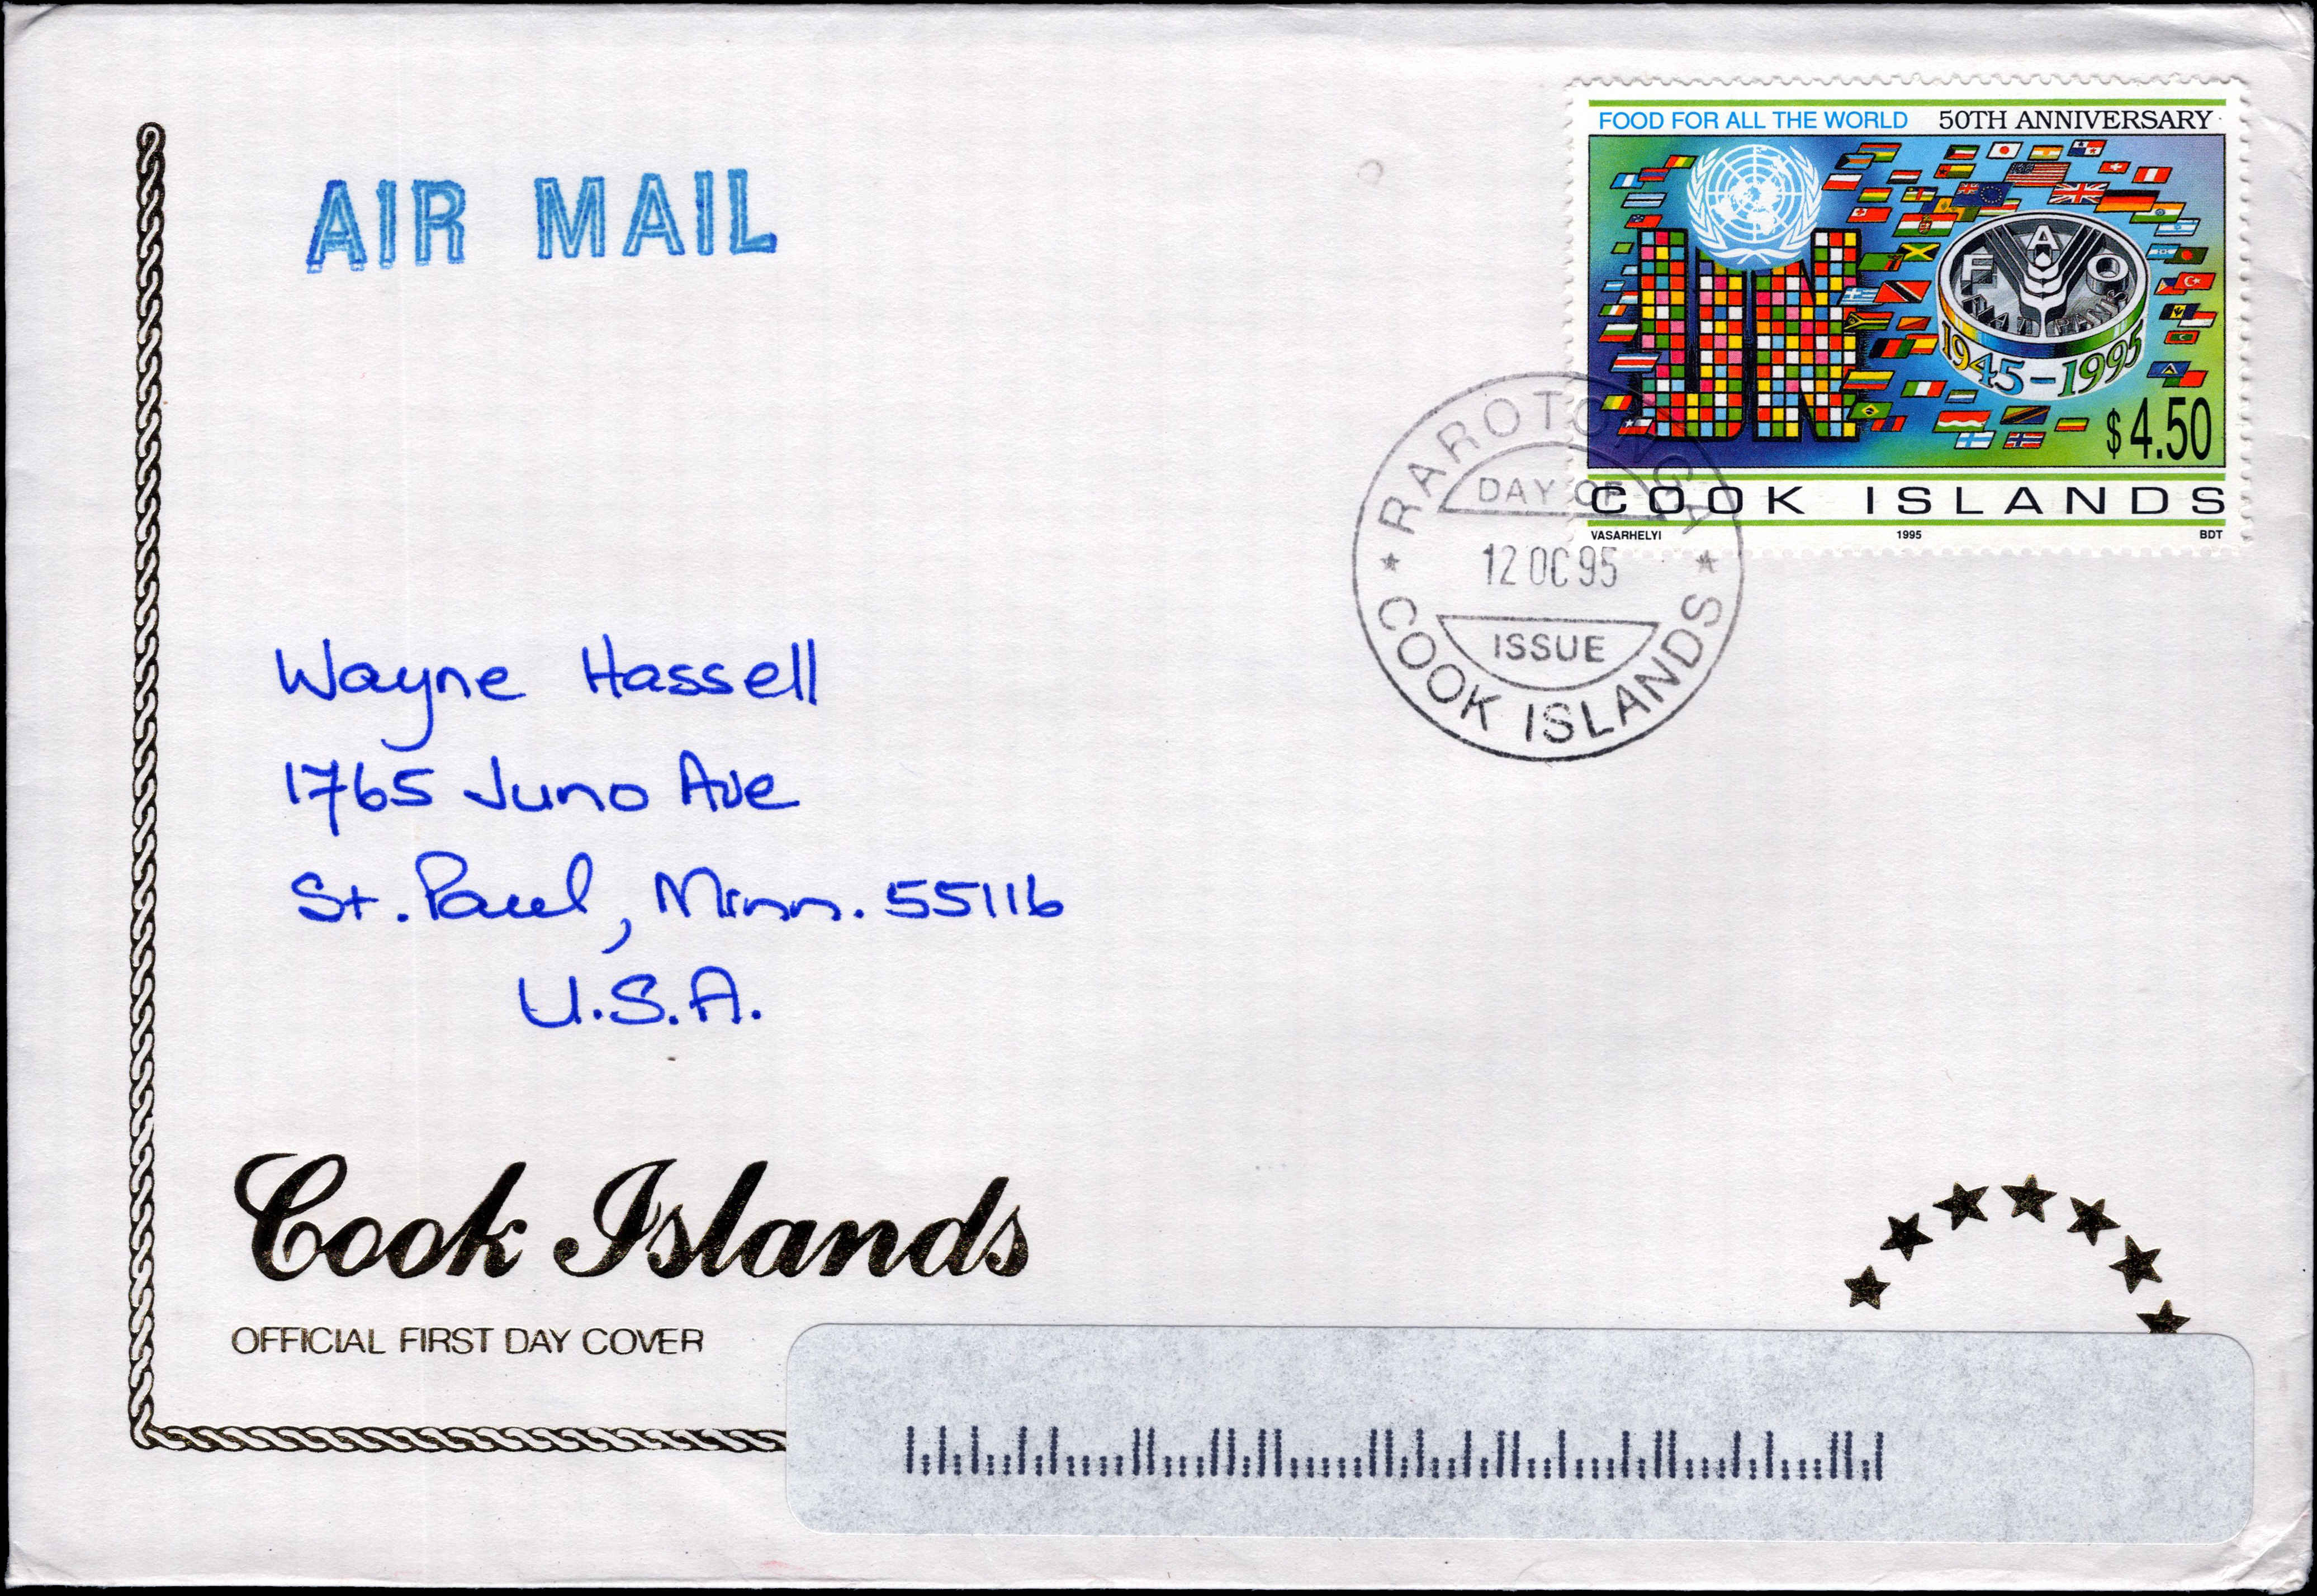 AIR MAIL
FOOD FOR ALL THE WORLD 50TH ANNIVERSARY
UN
FAO
FIAT PANIS
1945-1995
$4.50
COOK ISLANDS
VASARHELYI 1995 BDT
RAROTONGA
DAY OF
12 OC 95
ISSUE
COOK ISLANDS
Wayne Hassell
1765 Juno Ave
St. Paul, Minn. 55116
U.S.A.
Cook Islands
OFFICIAL FIRST DAY COVER